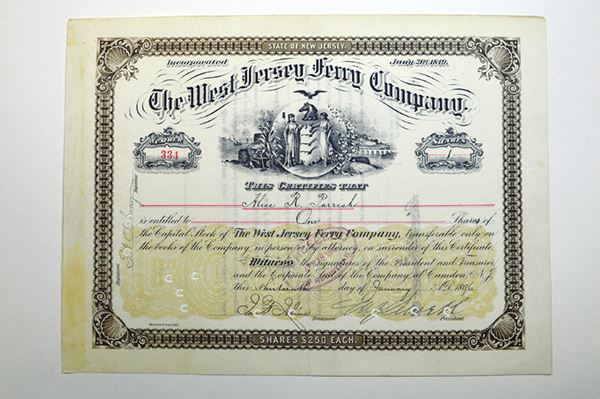 STATE OF NEW JERSEY.
Incorporated
The West Jersey Ferry Company.
NUMBER
334
SHARES
1
THIS CERTIFIES THAT
Alice R. Parrish
is entitled to One Shares of
the Capital Stock of The West Jersey Ferry Company, transferable only on
the books of the Company in person or by attorney, on surrender of this Certificate
Witness the signatures of the President and Treasurer
and the Corporate Seal of the Company at Camden, N.J.
this day of January A.D. 1896
Treasurer
President
SHARES $250 EACH.